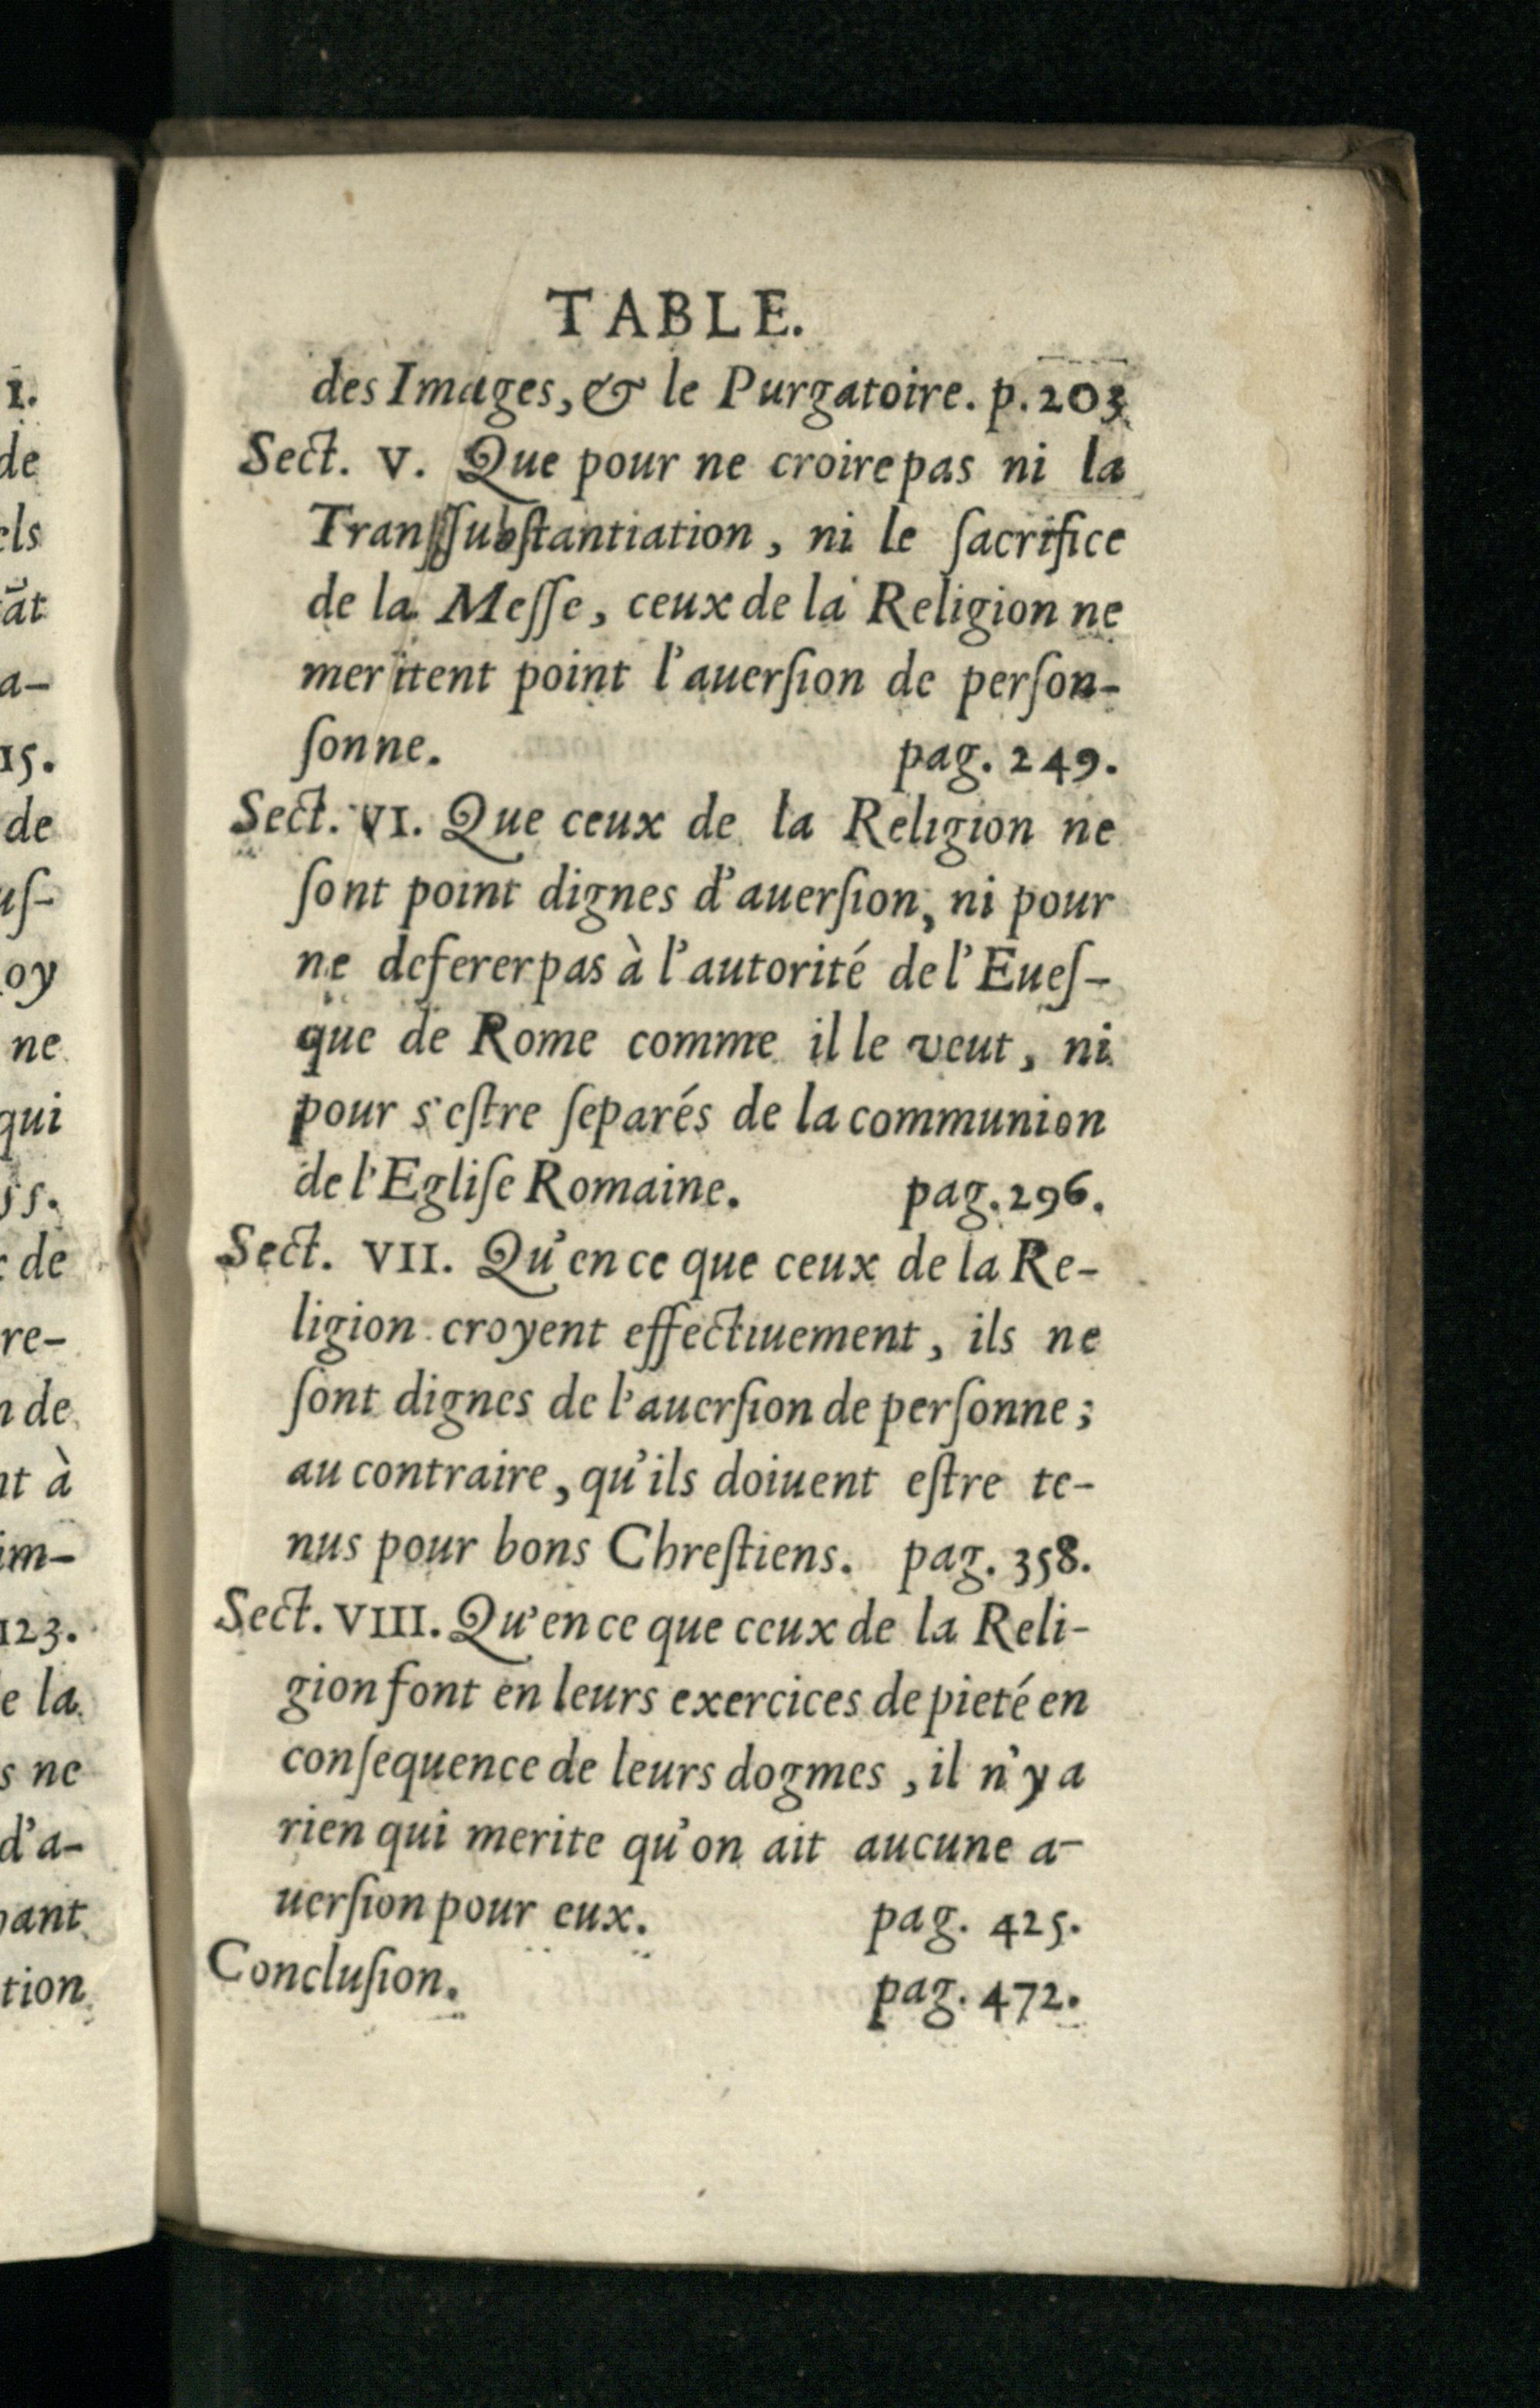 TABLE.
des Images, & le Purgatoire. p. 203.
Sect. V. Que pour ne croire pas ni la
Tranſſubſtantiation, ni le ſacrifice
de la Meſſe, ceux de la Religion ne
meritent point l'auerſion de perſon-
ſonne. pag. 249.
Sect. VI. Que ceux de la Religion ne
ſont point dignes d'auerſion, ni pour
ne deferer pas à l'autorité de l'Eueſ-
que de Rome comme il le veut, ni
pour s'eſtre ſeparés de la communion
de l'Egliſe Romaine. pag. 296.
Sect. VII. Qu'en ce que ceux de la Re-
ligion croyent effectiuement, ils ne
ſont dignes de l'auerſion de perſonne;
au contraire, qu'ils doiuent eſtre te-
nus pour bons Chreſtiens. pag. 358.
Sect. VIII. Qu'en ce que ceux de la Reli-
gion font en leurs exercices de pieté en
conſequence de leurs dogmes, il n'y a
rien qui merite qu'on ait aucune a-
uerſion pour eux. pag. 425.
Concluſion. pag. 472.